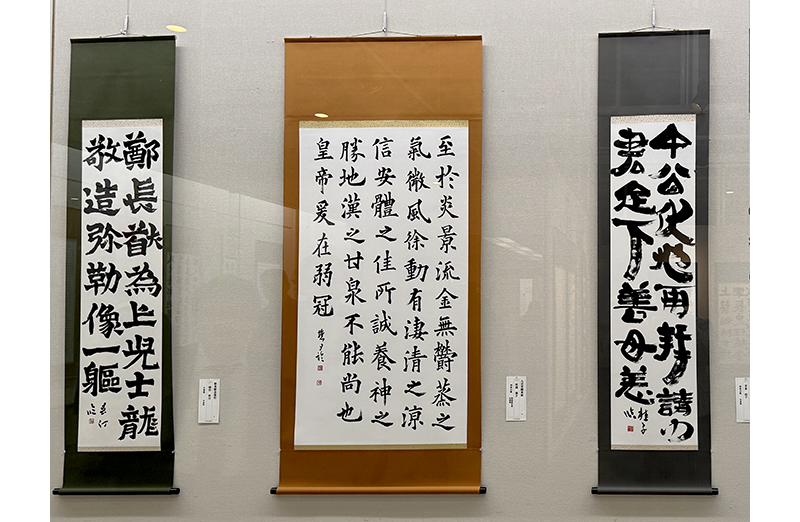 鄭長猷為亡兒士龍
敬造弥勒像一軀
至於炎景流金無鬱蒸之
氣微風徐動有淒清之涼
信安體之佳所誠養神之
勝地漢之甘泉不能尚也
皇帝爰在弱冠
再拜請
君足下善毋恙